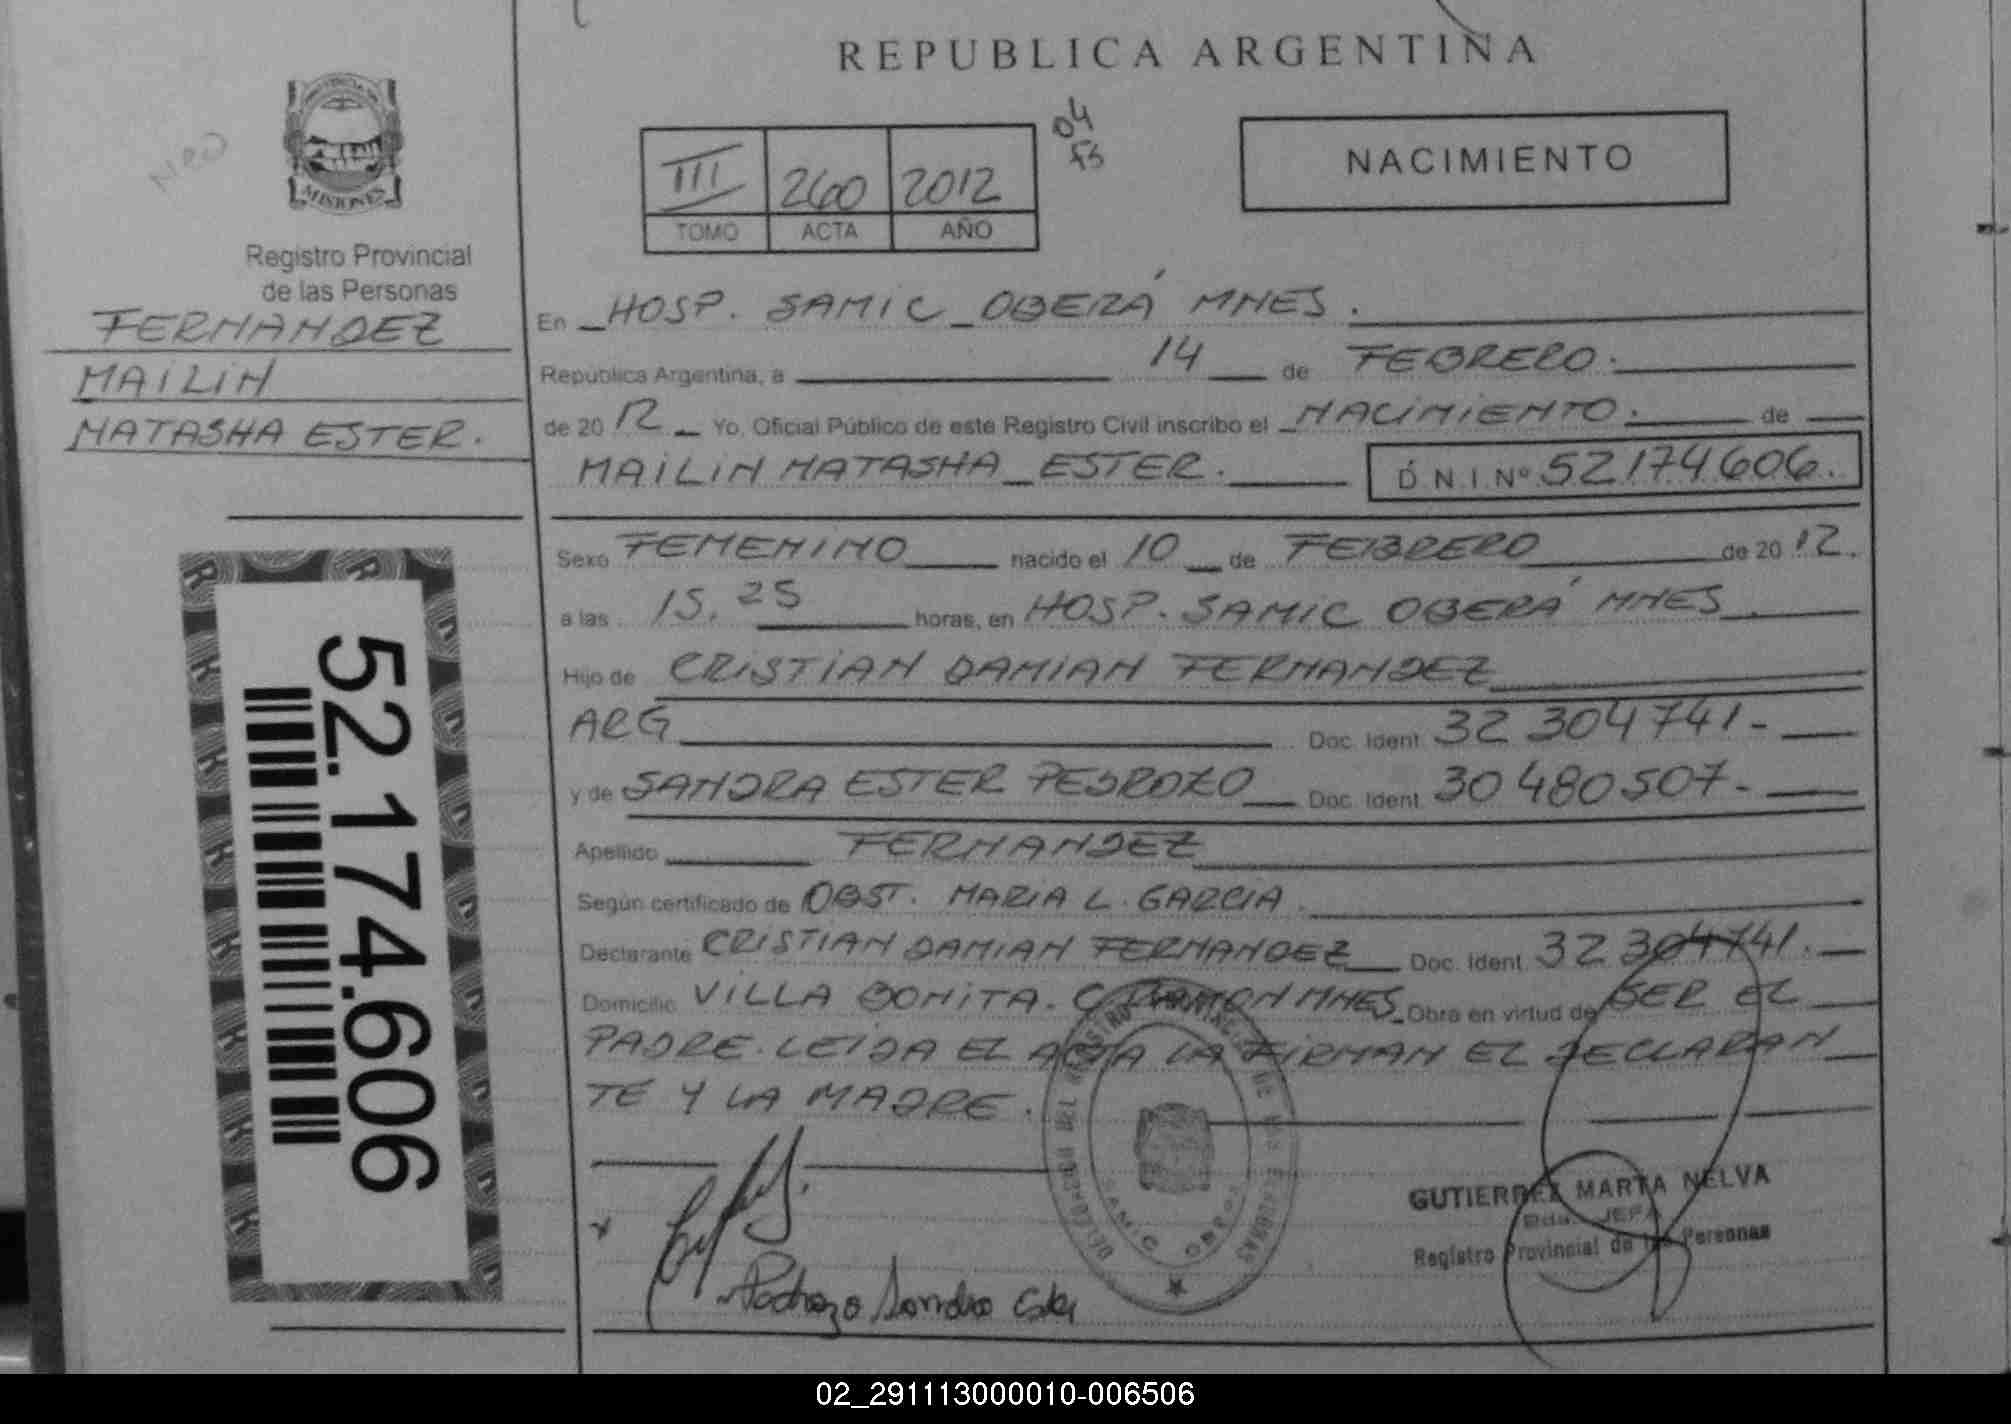 REPUBLICA ARGENTINA
MISIONES
Registro Provincial
de las Personas
FERNANDEZ
MAILIN
NATASHA ESTER.
52.174.606
III 260 2012
TOMO ACTA AÑO
04
F5
NACIMIENTO
En HOSP. SAMIC OBERÁ MNES.
República Argentina, a 14 de FEBRERO.
de 2012 Yo, Oficial Público de este Registro Civil inscribo el NACIMIENTO. de
MAILIN NATASHA ESTER. D.N.I.Nº 52.174.606.
Sexo FEMENINO nacido el 10 de FEBRERO de 2012.
a las 15.25 horas, en HOSP. SAMIC OBERÁ MNES
Hijo de CRISTIAN DAMIAN FERNANDEZ
ARG Doc. Ident. 32 304741-
y de SANDRA ESTER PEDROZO Doc. Ident. 30 480507-
Apellido FERNANDEZ
Según certificado de OBST. MARIA L. GARCIA.
Declarante CRISTIAN DAMIAN FERNANDEZ Doc. Ident. 32 304741.
Domicilio VILLA BONITA. C. RAMON MNES Obra en virtud de SER EL
PADRE. LEIDA EL ACTA LA FIRMAN EL DECLARAN
TE Y LA MADRE.
Pedrozo Sandra Ester
GUTIERREZ MARTA NELVA
JEFA
Registro Provincial de las Personas
02_291113000010-006506